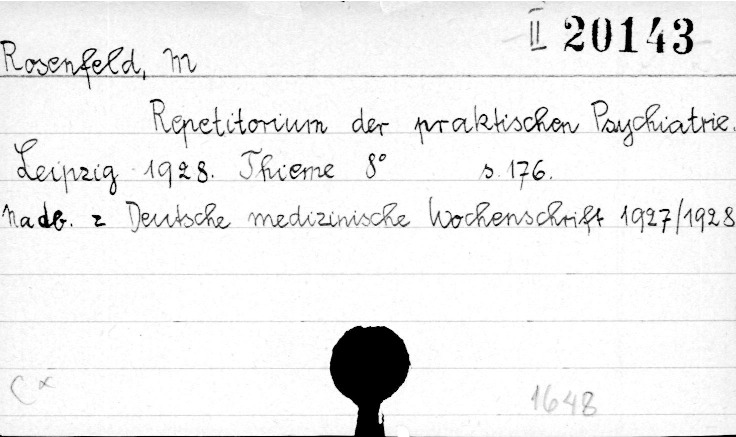 II 20143
Rosenfeld, M
Repetitorium der praktischen Psychiatrie.
Leipzig 1928. Thieme 8° s. 176.
Nadb. z Deutsche medizinische Wochenschrift 1927/1928
1648